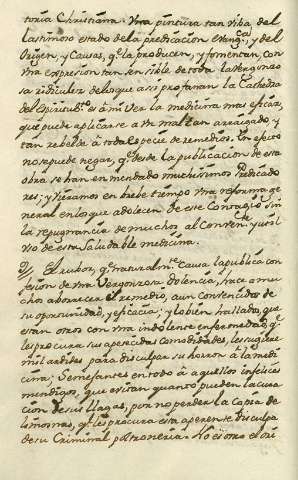 toria Christiana. Una pintura tan viba del
lastimoso estado de la predicacion Evangca. y del
Origen, y Causas, qe. la producen, y fomentan, con
una expresion tan sensible de toda la vergonzo
sa ridiculez de los que assi profanan la Cathedra
del Espiritu Sto. es à mi ver la medicina mas eficaz,
que puede aplicarse a un mal tan arraigado, y
tan rebelde à toda especie de remedios. En efecto
no se puede negar, qe. desde la publicacion de esta
obra se han enmendado muchissimos Predicado
res; y vieramos en brebe tiempo una reforma ge
neral en los que adolecen de este Contagio, sin
la repugnancia de muchos al Conocimto. y al
uso de esta Saludable medicina.
El rubor, qe. naturalmte. causa la publica con
fesion de una vergonzosa dolencia, hace a mu
chos aborrecer el remedio, aun convencidos de
su oportunidad, y eficacia; y lo bien hallados, que
estan otros con una indolente enfermedad, qe.
les procura sus apetecidas comodidades, les sugiere
mil ardides para disculpar su horror à la medi
cina; Semejantes en todo à aquellos infelices
mendigos, que evitan quanto pueden la cura
cion de sus llagas, por no perder la copia de
limosnas, qe. les procura esta aparente disculpa
de su Criminal poltroneria. No es otro el ori